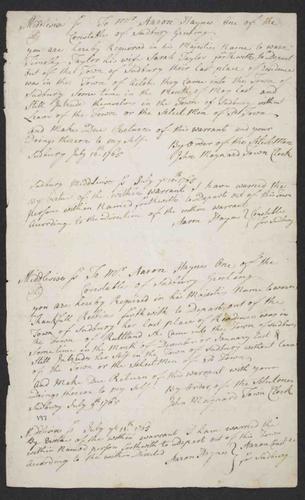 Middlesex ss To Mr. Aaron Haynes One of the
Constable of Sudbury Greeting
you are hereby Required in his Majesties Name to warn
Taylor his wife Sarah Taylor forthwith to Depart
out of the Town of Sudbury their Last place of Residence
was in the Town of they Came into the Town of
Sudbury Some time in the Month of May Last and
Still Intrude themselves in the Town of Sudbury without
Leave of the Town or the Select Men of Sd Town
and Make Due Return of this warrant and your
Doings thereon to my self. By Order of the Select Men
Sudbury July 1765 John Maynard Town Clerk
Sudbury Middlesex ss July 1765
By virtue of the within warrant I have warned the
persons within Named forthwith to Depart out of this Town
According to the Direction of the within warrant
Aaron Haynes Constable
for Sudbury
Middlesex ss To Mr. Aaron Haynes One of the
Constable of Sudbury Greeting
you are hereby Required in his Majesties Name to warn
Thankfull forthwith to Depart out of the
Town of Sudbury her Last place of Residence was in
the Town of Rutland She Came into the Town of Sudbury
Some time in the Month of Last &
Still Intrudes her Self in the Town of Sudbury without Leave
of the Town or the Select Men of sd Town
And Make Due Return of this warrant with your
Doings thereon to my Self. By Order of the Selectmen
Sudbury July 1765 John Maynard Town Clerk
Middlesex ss July 1765
By Virtue of the within warrant I have warned the
within Named person forthwith to Depart out of this Town
According to the within
Aaron Haynes Constable
for Sudbury